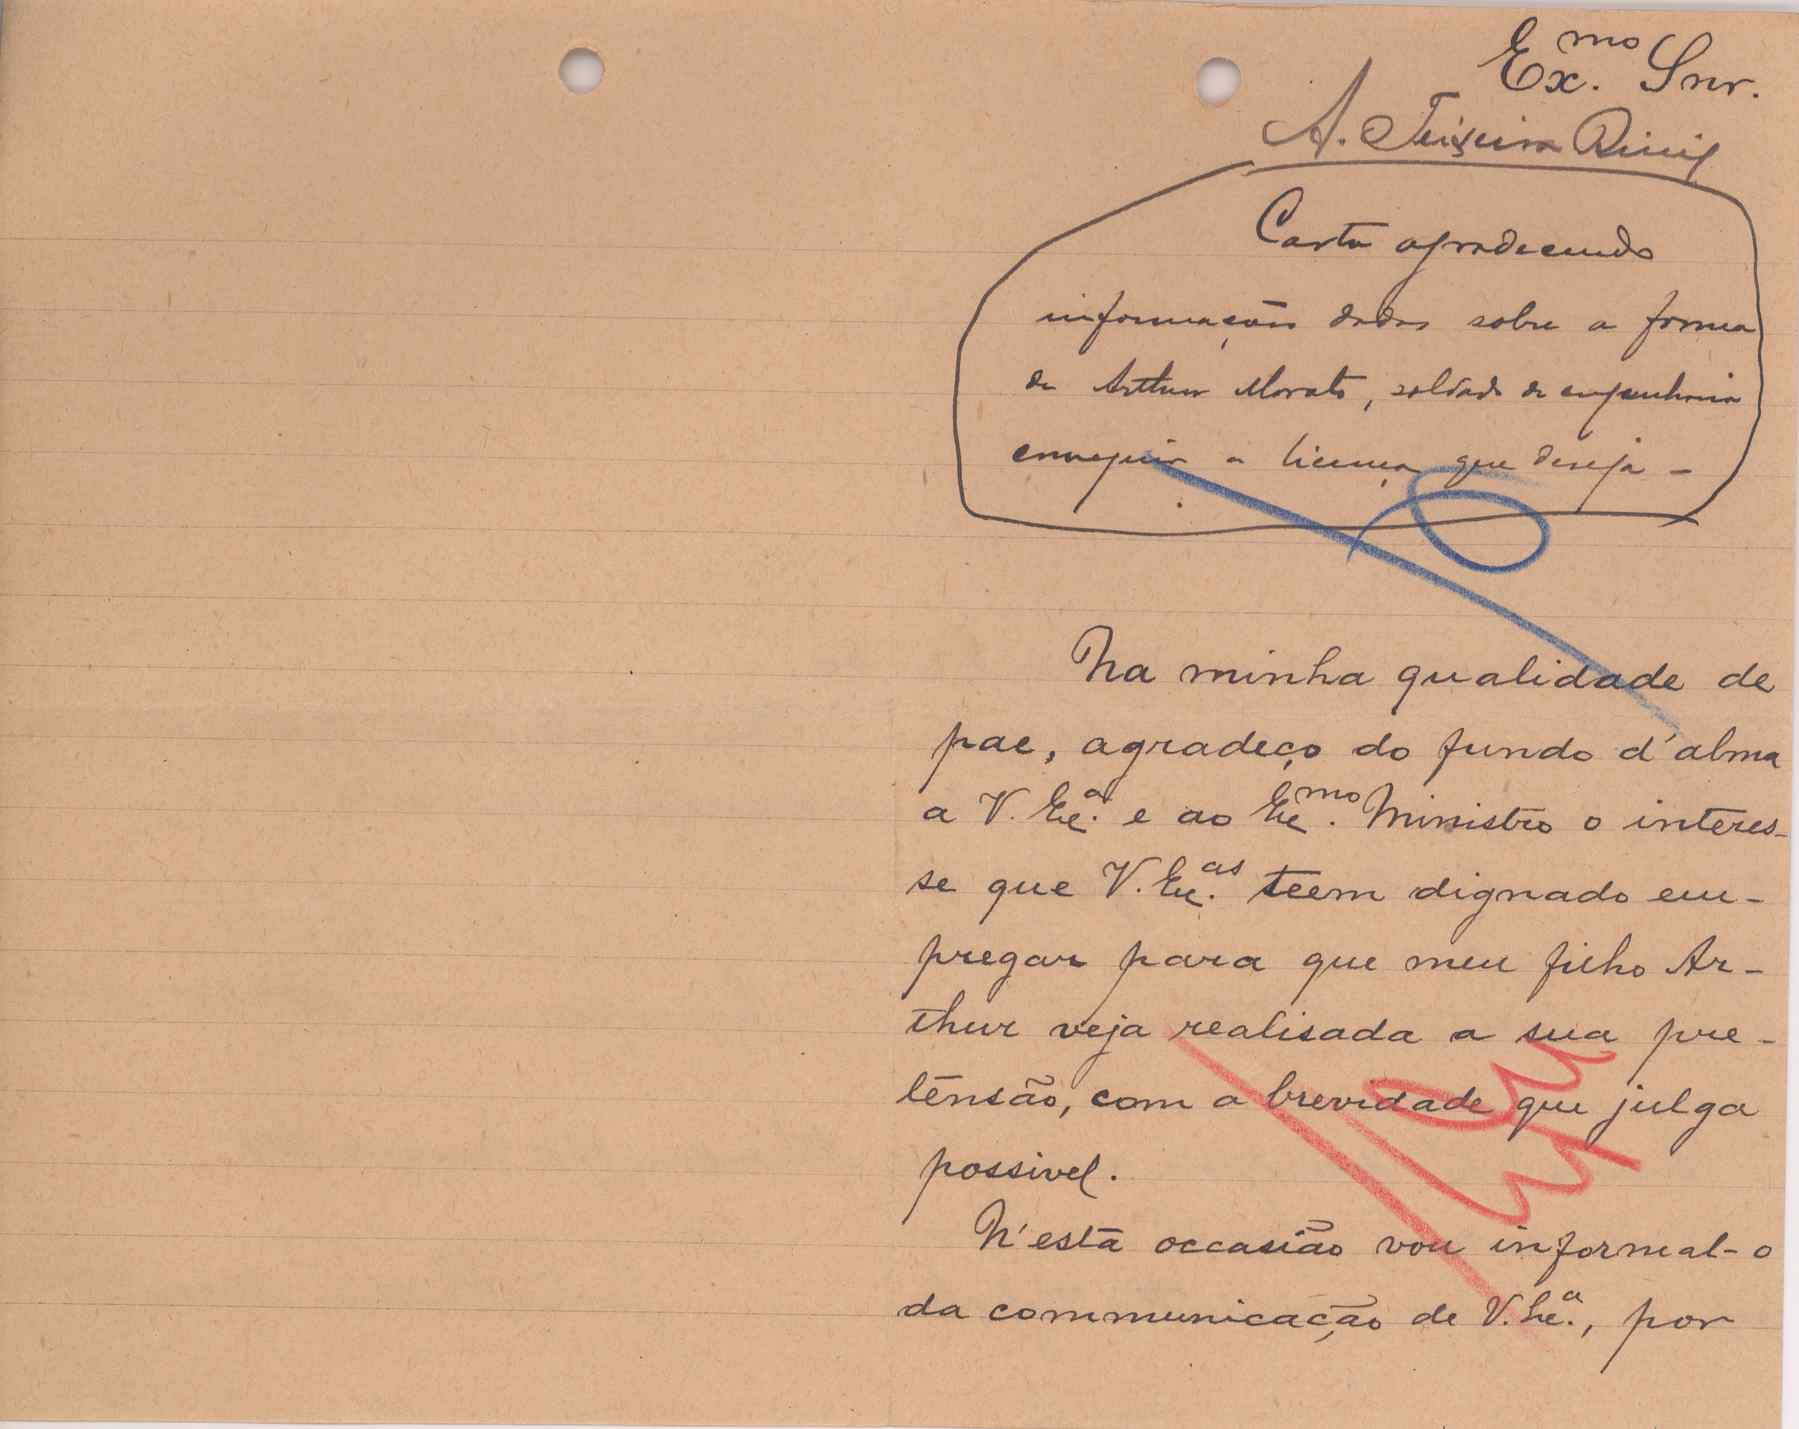 Ex.mo Snr.
A. Teixeira Diniz
Carta agradecendo
informações dadas sobre a forma
de Arthur Morato, soldado de engenharia
conseguir a licença que deseja -
Na minha qualidade de
pae, agradeço do fundo d'alma
a V. Exc.a e ao Exc.mo Ministro o interes-
se que V. Exc.as teem dignado em-
pregar para que meu filho Ar-
thur veja realisada a sua pre-
tensão, com a brevidade que julga
possivel.
N'esta occasião vou informal-o
da communicação de V. Exc.a, por